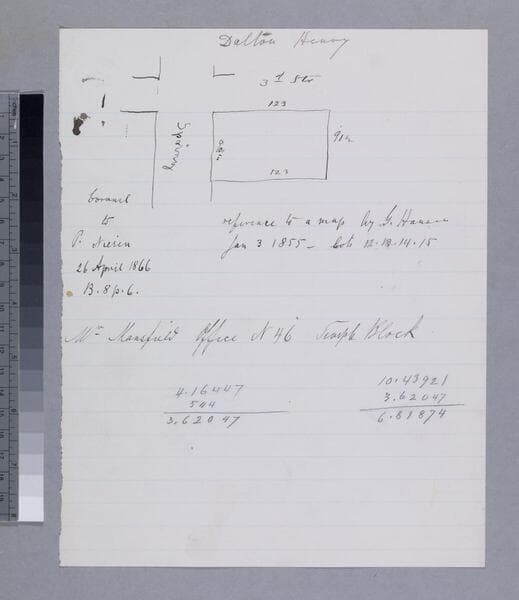 Dalton Henry
3d Str
123
Spring
91 1/2
123
Coronel
to
P.
26 April 1866
B. 8 p. 6.
reference to a map by G. Hansen
Jan 3 1855 - Lots 12.13.14.15
Mr Mansfield Office N 46 Temple Block
4.16447
544
3.62047
10.43921
3.62047
6.81874